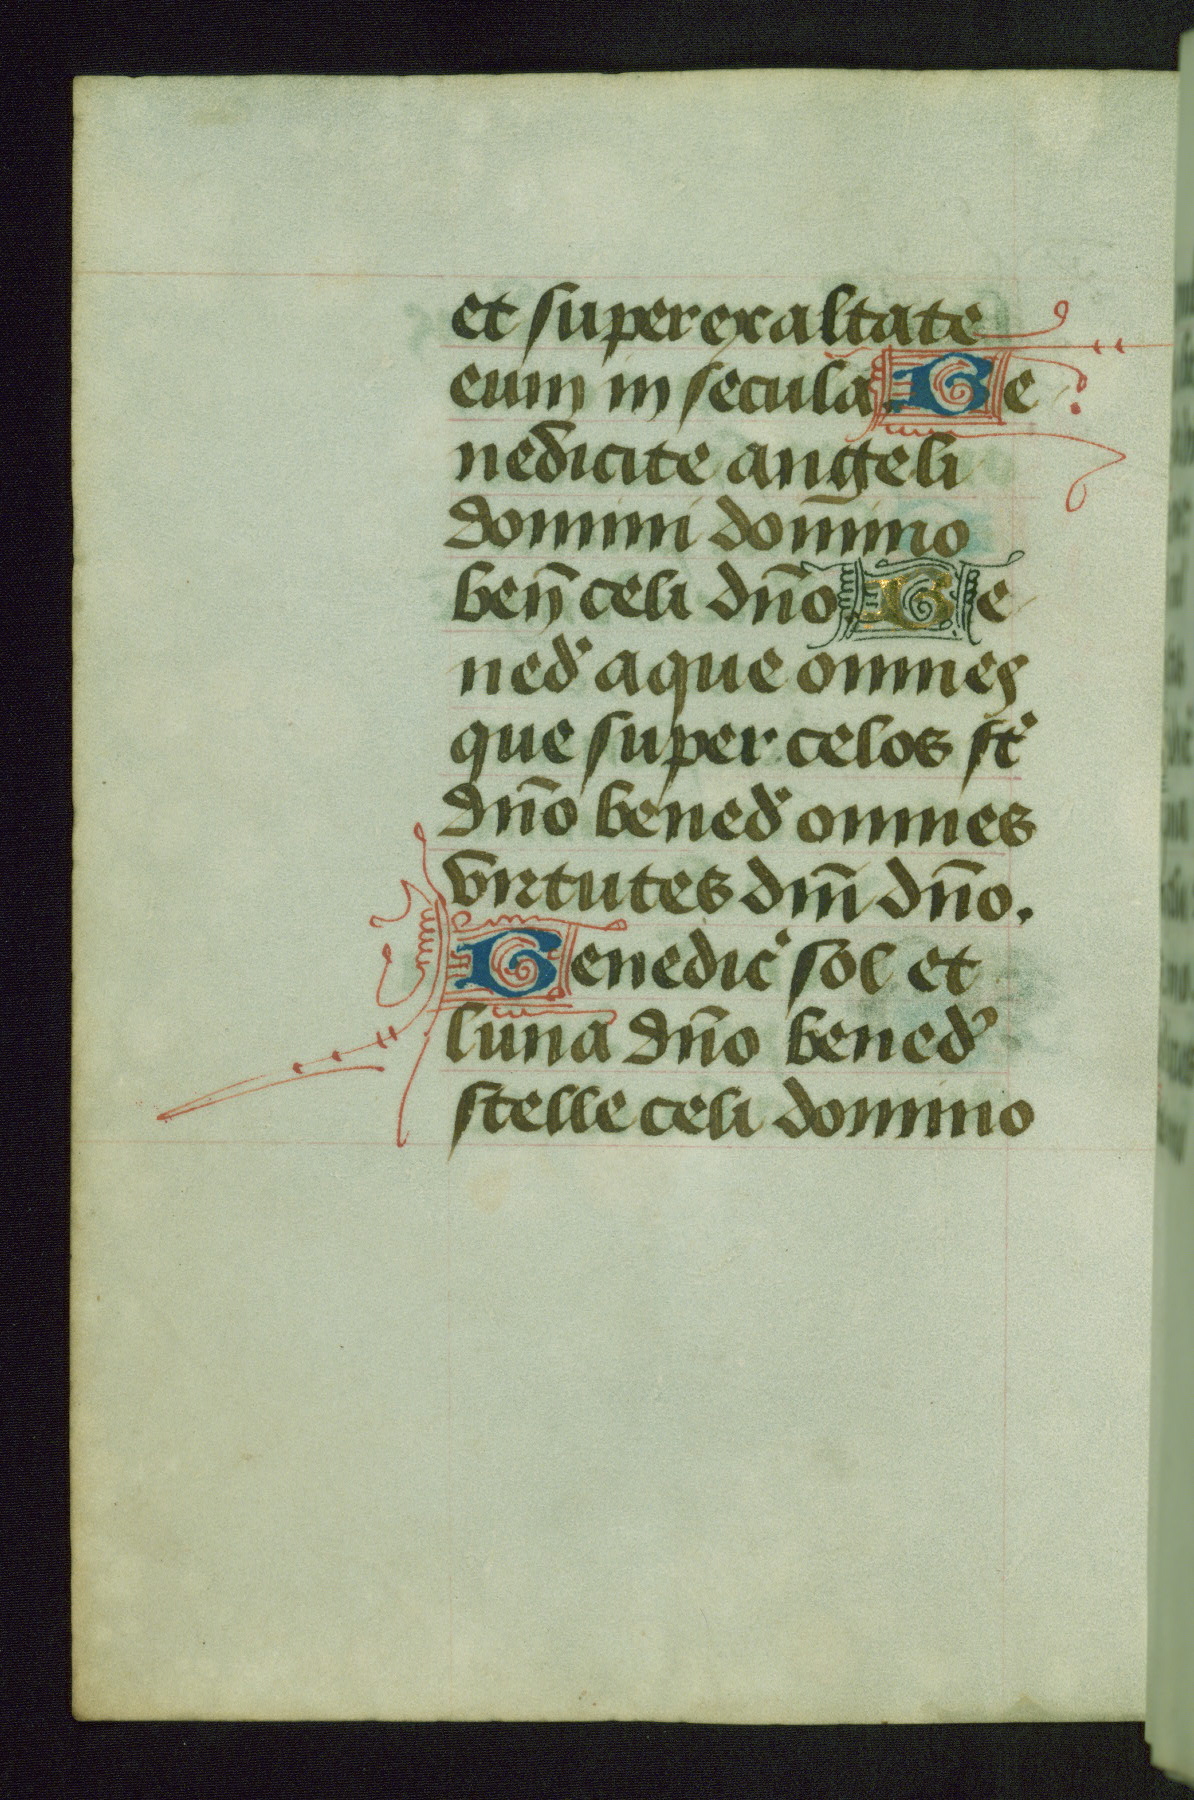 et superexaltate
eum in secula. Be
nedicite angeli
domini domino
ben̄ celi dn̄o. Be
ned' aque omnes
que super celos st'
dn̄o bened' omnes
virtutes dn̄i dn̄o.
Benedic' sol et
luna dn̄o bened'
stelle celi domino